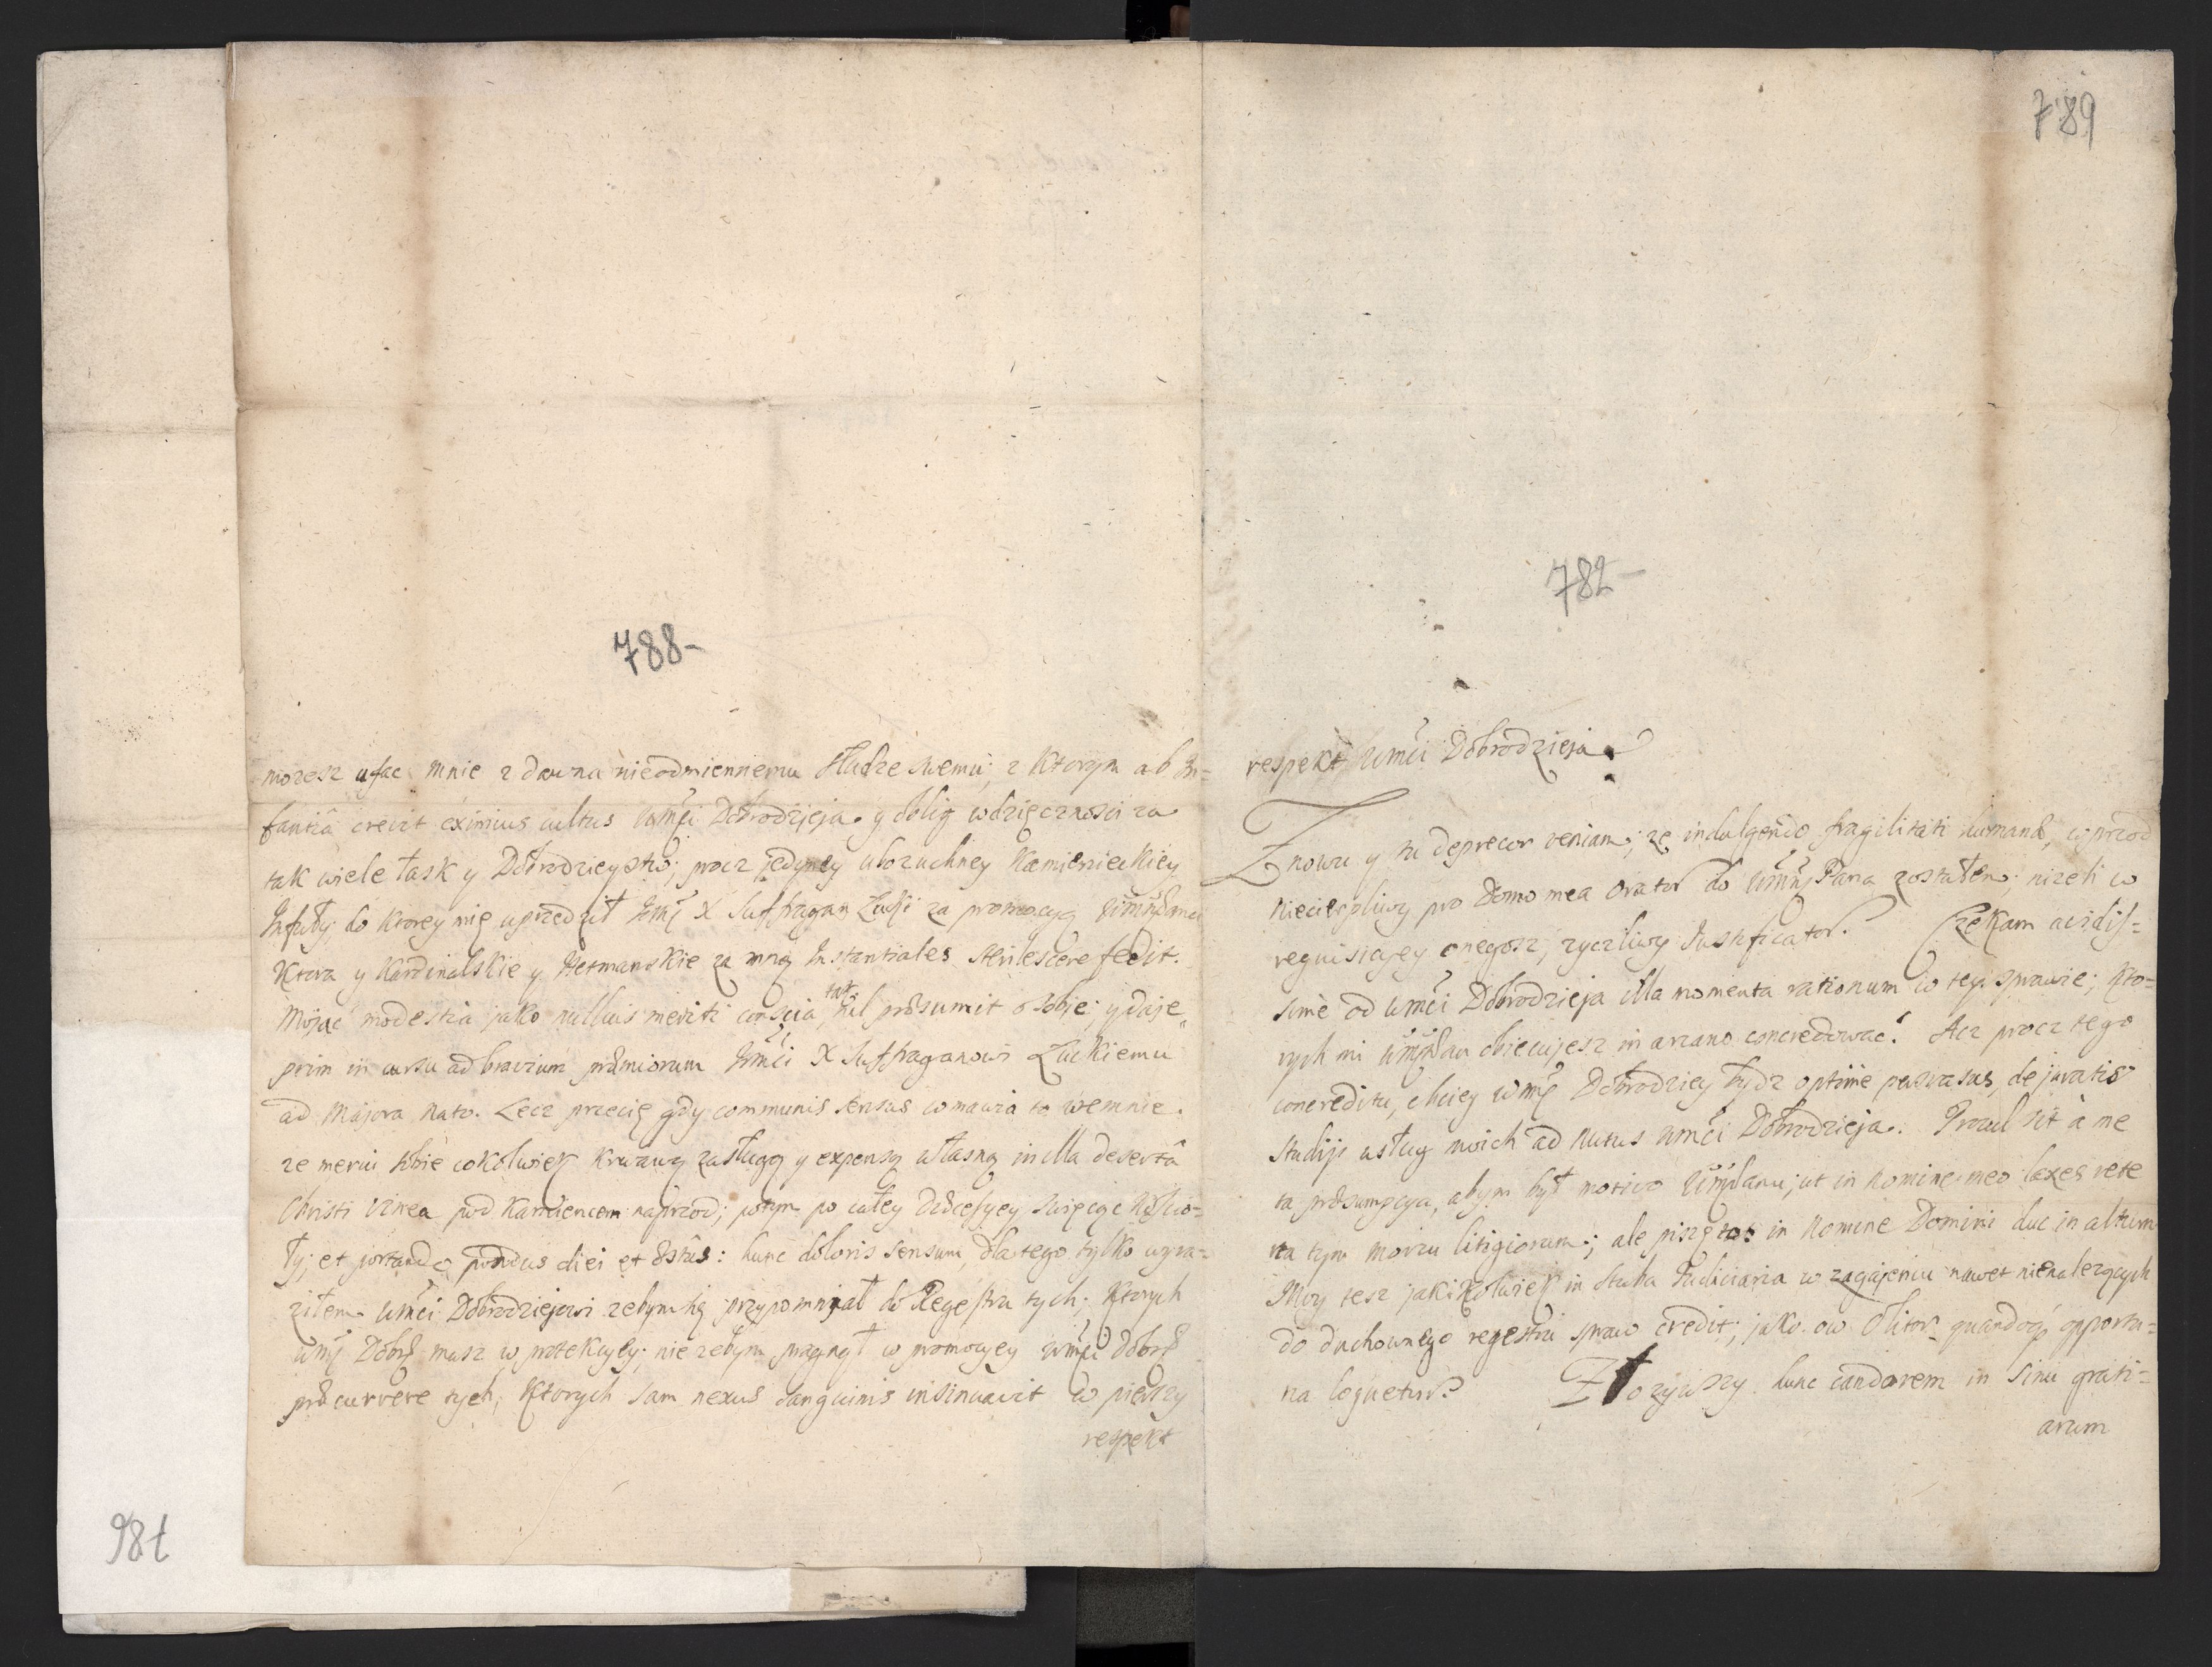 788-
mozesz ufac mnie z dawna nieodmiennemu Słudze swemu; z ktorym ab In=
fantiâ crevit eximius cultus Wmci Dobrodzieja, y oblig wdzięcznosci za
tak wiele łask y Dobrodzieystw; procz jedyney ubozuchney Kamienieckiey
Infuły, do ktorey mię uprzedził Jmć X Suffragan Łucki za promocyą
ktora y Kardinalskie y Hetmanskie za mną Instantiales sterilescere fecit.
Mojać modestia jako nullius meriti conscia tak nil præsumit o sobie; y daje
prim in cursu ad bravium præmiorum Jmci X Suffraganowi Łuckiemu
ad Majora nato. Lecz przecię gdy communis sensus wmawia to wemnie.
ze merui sobie cokolwiek krwawą zasługą y expensą własną in illa deserta
Christi vinea pod Kamiencem naprzod; potym po całey Diæcesyey swięcąc Koscio=
ły; et portando pondus diei et æstûs: hunc doloris sensum, dla tego tylko wyra=
ziłem Wmci Dobrodziejowi zebym się przypomniał do Regestru tych; ktorych
Wmć Dobrz masz w protekcyey; nie zebym pragnął w promocyey Wmci Dobrz
præcurrere tych, ktorych sam nexus sanguinis insinuavit w pierszy
respekt
789
782-
respekt Wmci Dobrodzieja.
Znowu y tu deprecor veniam; ze indulgendo fragilitati humanæ, wprzod
niecierpliwy pro Domo mea orator do Pana zostałem; nizeli w
requisicyey onegosz, zyczliwy Justificator. Czekam avidis=
sime od Wmci Dobrodzieja illa momenta rationum w tey sprawie; kto=
rych mi obiecujesz in arcano concredować. Acz procz tego
concreditu, chciey Wmć Dobrodziey bydz optime persvasus, de juratis
studijs usług moich ad nutus Wmci Dobrodzieja. Procul sit à me
ta præsumpcya, abym był motivo ut in nomine meo laxes rete
na tym morzu litigiorum; ale piszę tot in nomine Domini duc in altum
Moy tesz jakizkolwiek in stuba Judiciaria w zagajeniu nawet nienalezących
do duchownego regestru spraw credit; jako ow olitor quandoq opportu=
na loquetur. Złozywszy hunc candorem in sinu grati=
arum
786